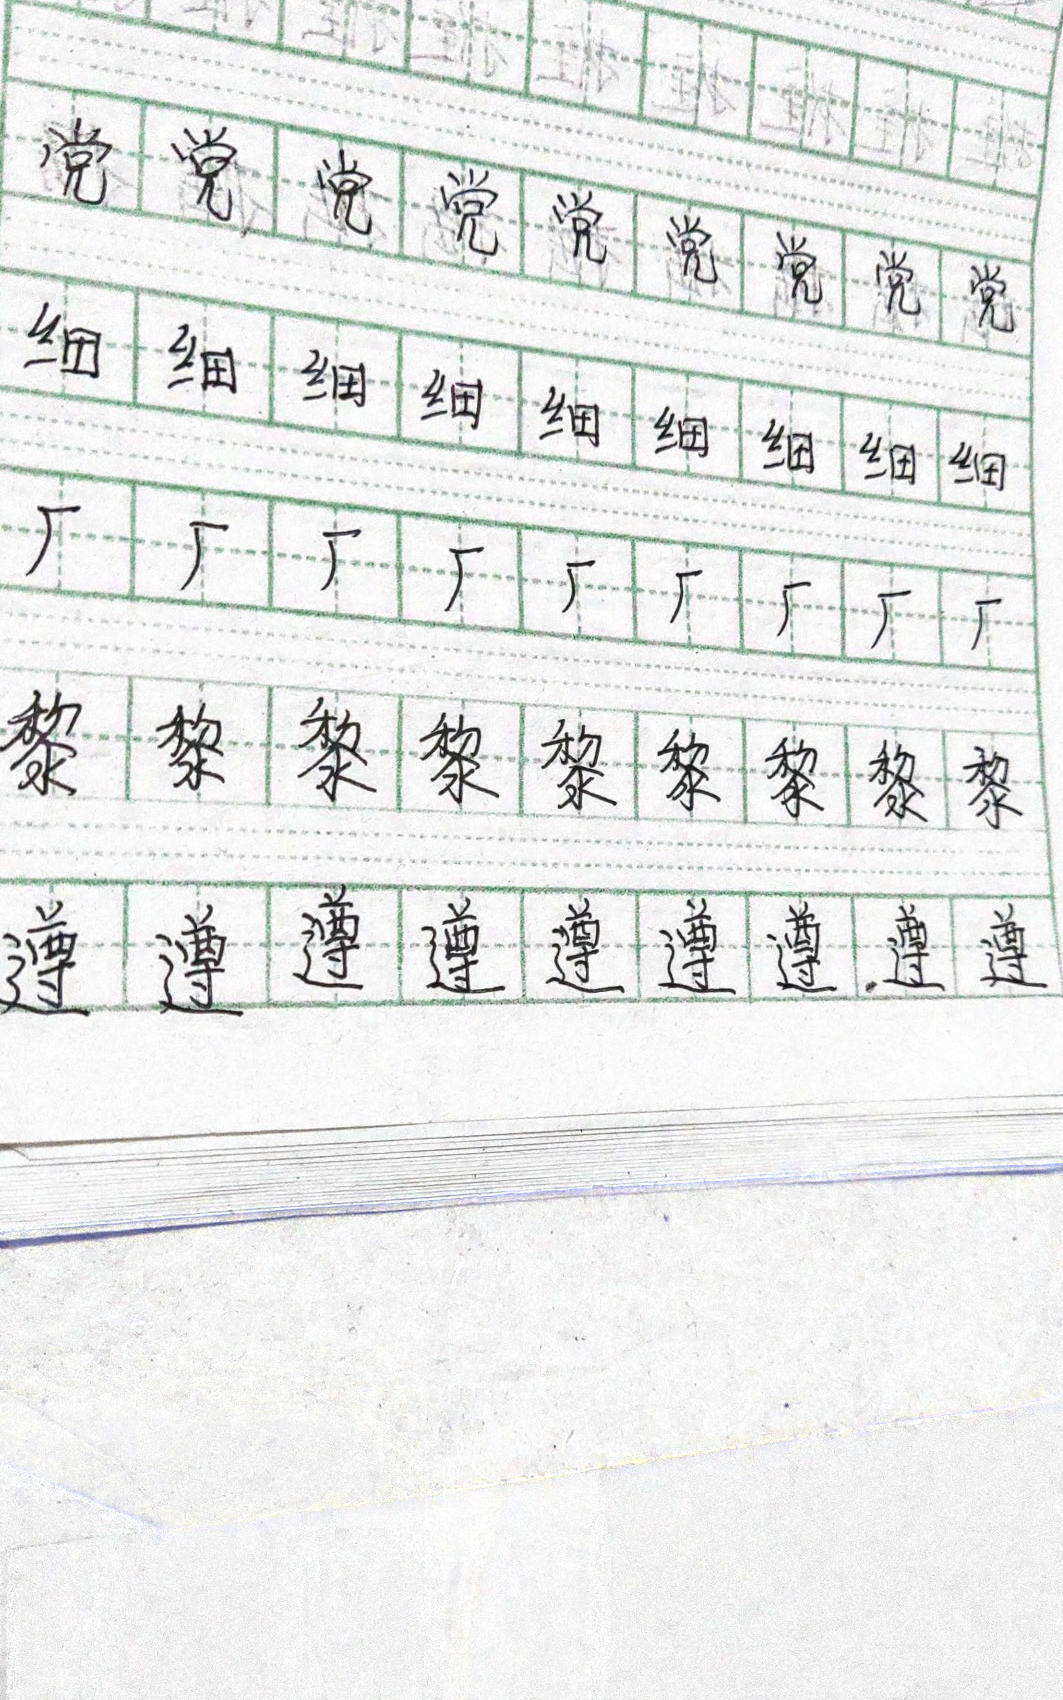 党党党党党党党党党
细细细细细细细细细
厂厂厂厂厂厂厂厂厂
黎黎黎黎黎黎黎黎黎
遵遵遵遵遵遵遵遵遵